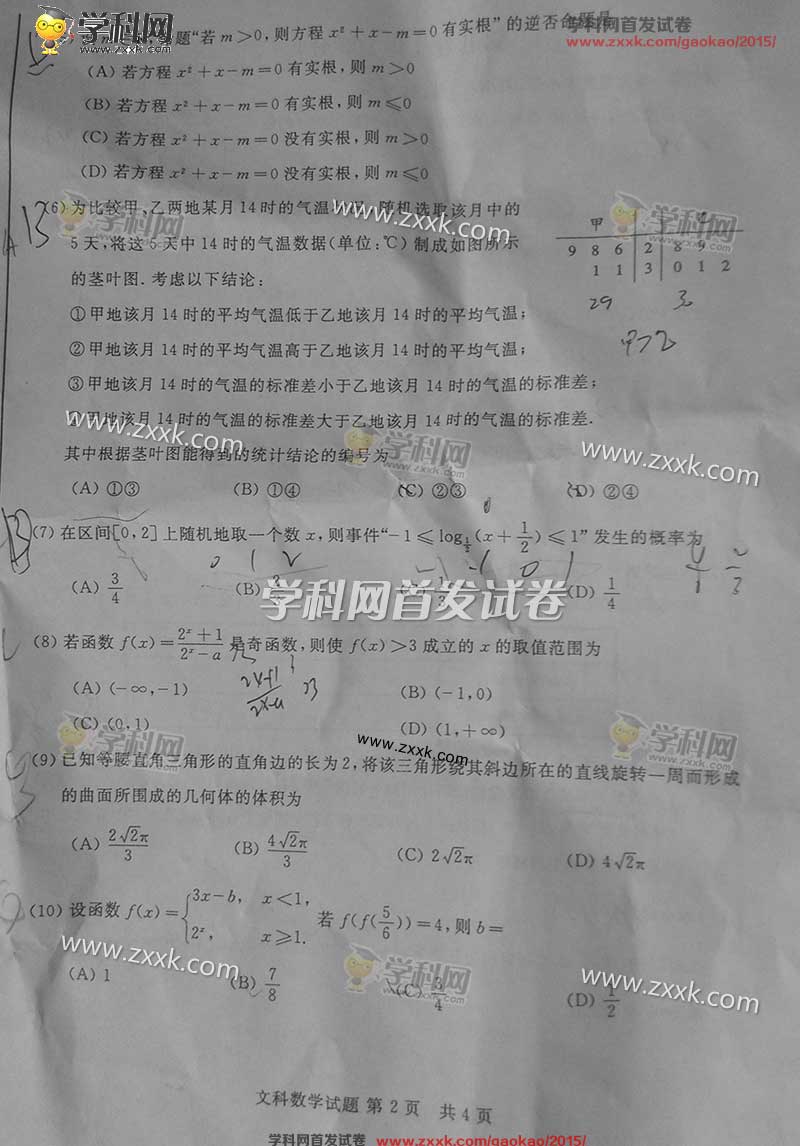 学科网
www.zxxk.com
学科网首发试卷
www.zxxk.com/gaokao/2015/
题“若 m>0,则方程 x²+x-m=0 有实根”的逆否命题是
(A) 若方程 x²+x-m=0 有实根,则 m>0
(B) 若方程 x²+x-m=0 有实根,则 m⩽0
(C) 若方程 x²+x-m=0 没有实根,则 m>0
(D) 若方程 x²+x-m=0 没有实根,则 m⩽0
(6) 为比较甲、乙两地某月 14 时的气温 随机选取该月中的
5 天,将这 5 天中 14 时的气温数据(单位:℃)制成如图所示
的茎叶图. 考虑以下结论:
甲
9 8 6 2 8 9
1 1 3 0 1 2
29
甲>乙
①甲地该月 14 时的平均气温低于乙地该月 14 时的平均气温;
②甲地该月 14 时的平均气温高于乙地该月 14 时的平均气温;
③甲地该月 14 时的气温的标准差小于乙地该月 14 时的气温的标准差;
甲地该月 14 时的气温的标准差大于乙地该月 14 时的气温的标准差.
其中根据茎叶图能得到的统计结论的编号为
(A) ①③ (B) ①④ (C) ②③ (D) ②④
(7) 在区间[0,2]上随机地取一个数 x,则事件“-1⩽log_{1/2}(x+1/2)⩽1”发生的概率为
(A) 3/4 (B) (C) 1/3 (D) 1/4
学科网首发试卷
(8) 若函数 f(x)=(2ˣ+1)/(2ˣ-a) 是奇函数,则使 f(x)>3 成立的 x 的取值范围为
(A) (-∞,-1) (B) (-1,0)
(C) (0,1) (D) (1,+∞)
(9) 已知等腰直角三角形的直角边的长为 2,将该三角形绕其斜边所在的直线旋转一周而形成
的曲面所围成的几何体的体积为
(A) 2√2π/3 (B) 4√2π/3 (C) 2√2π (D) 4√2π
(10) 设函数 f(x)={3x-b, x<1,
2ˣ, x⩾1.
若 f(f(5/6))=4,则 b=
(A) 1 (B) 7/8 (C) 3/4 (D) 1/2
www.zxxk.com
文科数学试题 第 2 页 共 4 页
学科网首发试卷 www.zxxk.com/gaokao/2015/